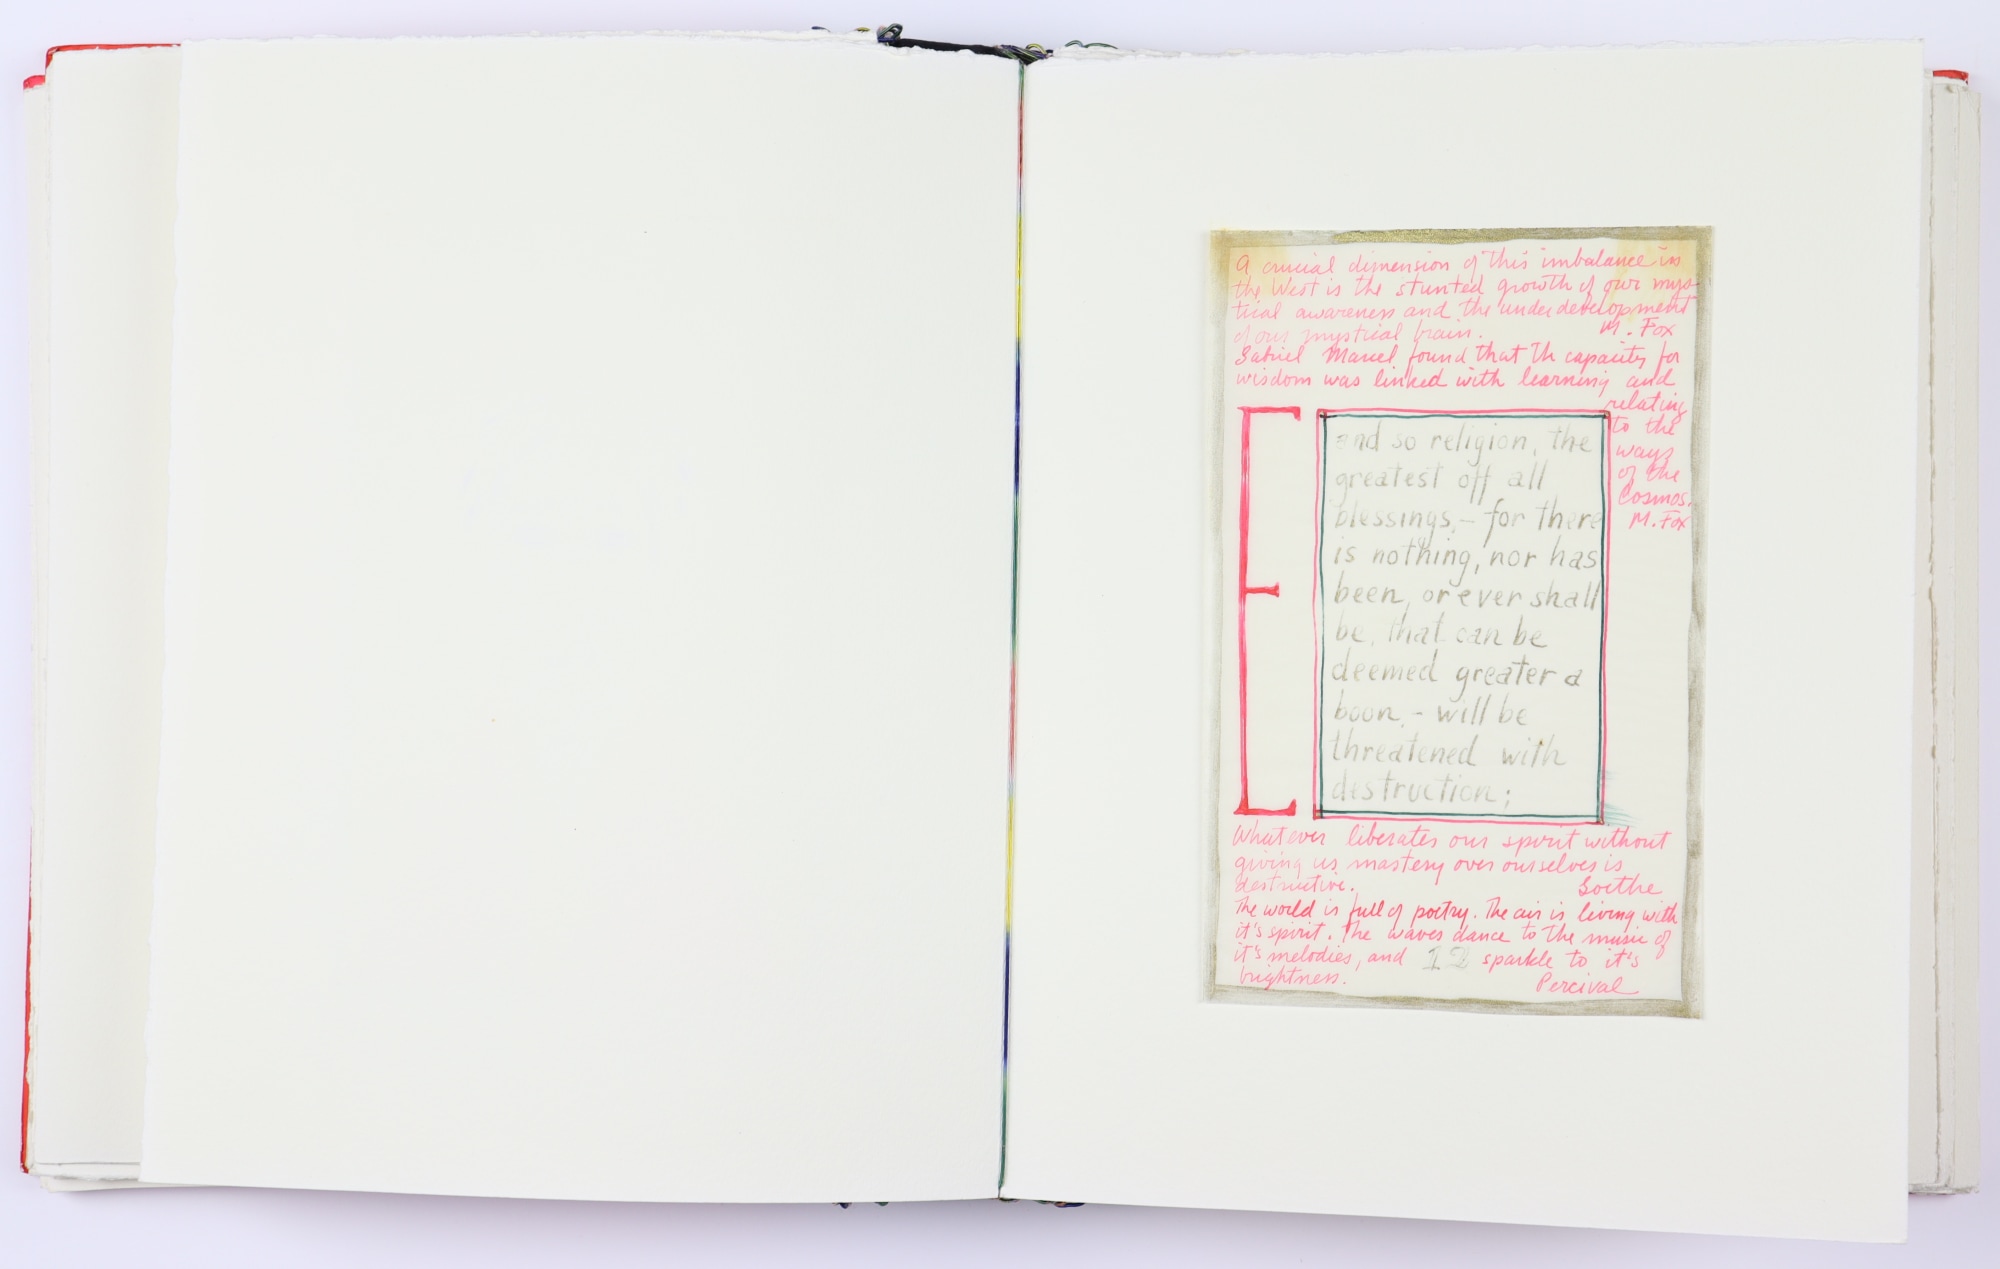 A crucial dimension of this imbalance in
the West is the stunted growth of our mys-
tical awareness and the underdevelopment
of our mystical brain. M. Fox
Gabriel Marcel found that the capacity for
wisdom was linked with learning and
relating
to the
ways
of the
Cosmos.
M. Fox
E
and so religion, the
greatest off all
blessings, – for there
is nothing, nor has
been, or ever shall
be, that can be
deemed greater a
boon, – will be
threatened with
destruction;
Whatever liberates our spirit without
giving us mastery over ourselves is
destructive. Goethe
The world is full of poetry. The air is living with
it's spirit. The waves dance to the music of
it's melodies, and 12 sparkle to it's
brightness. Percival